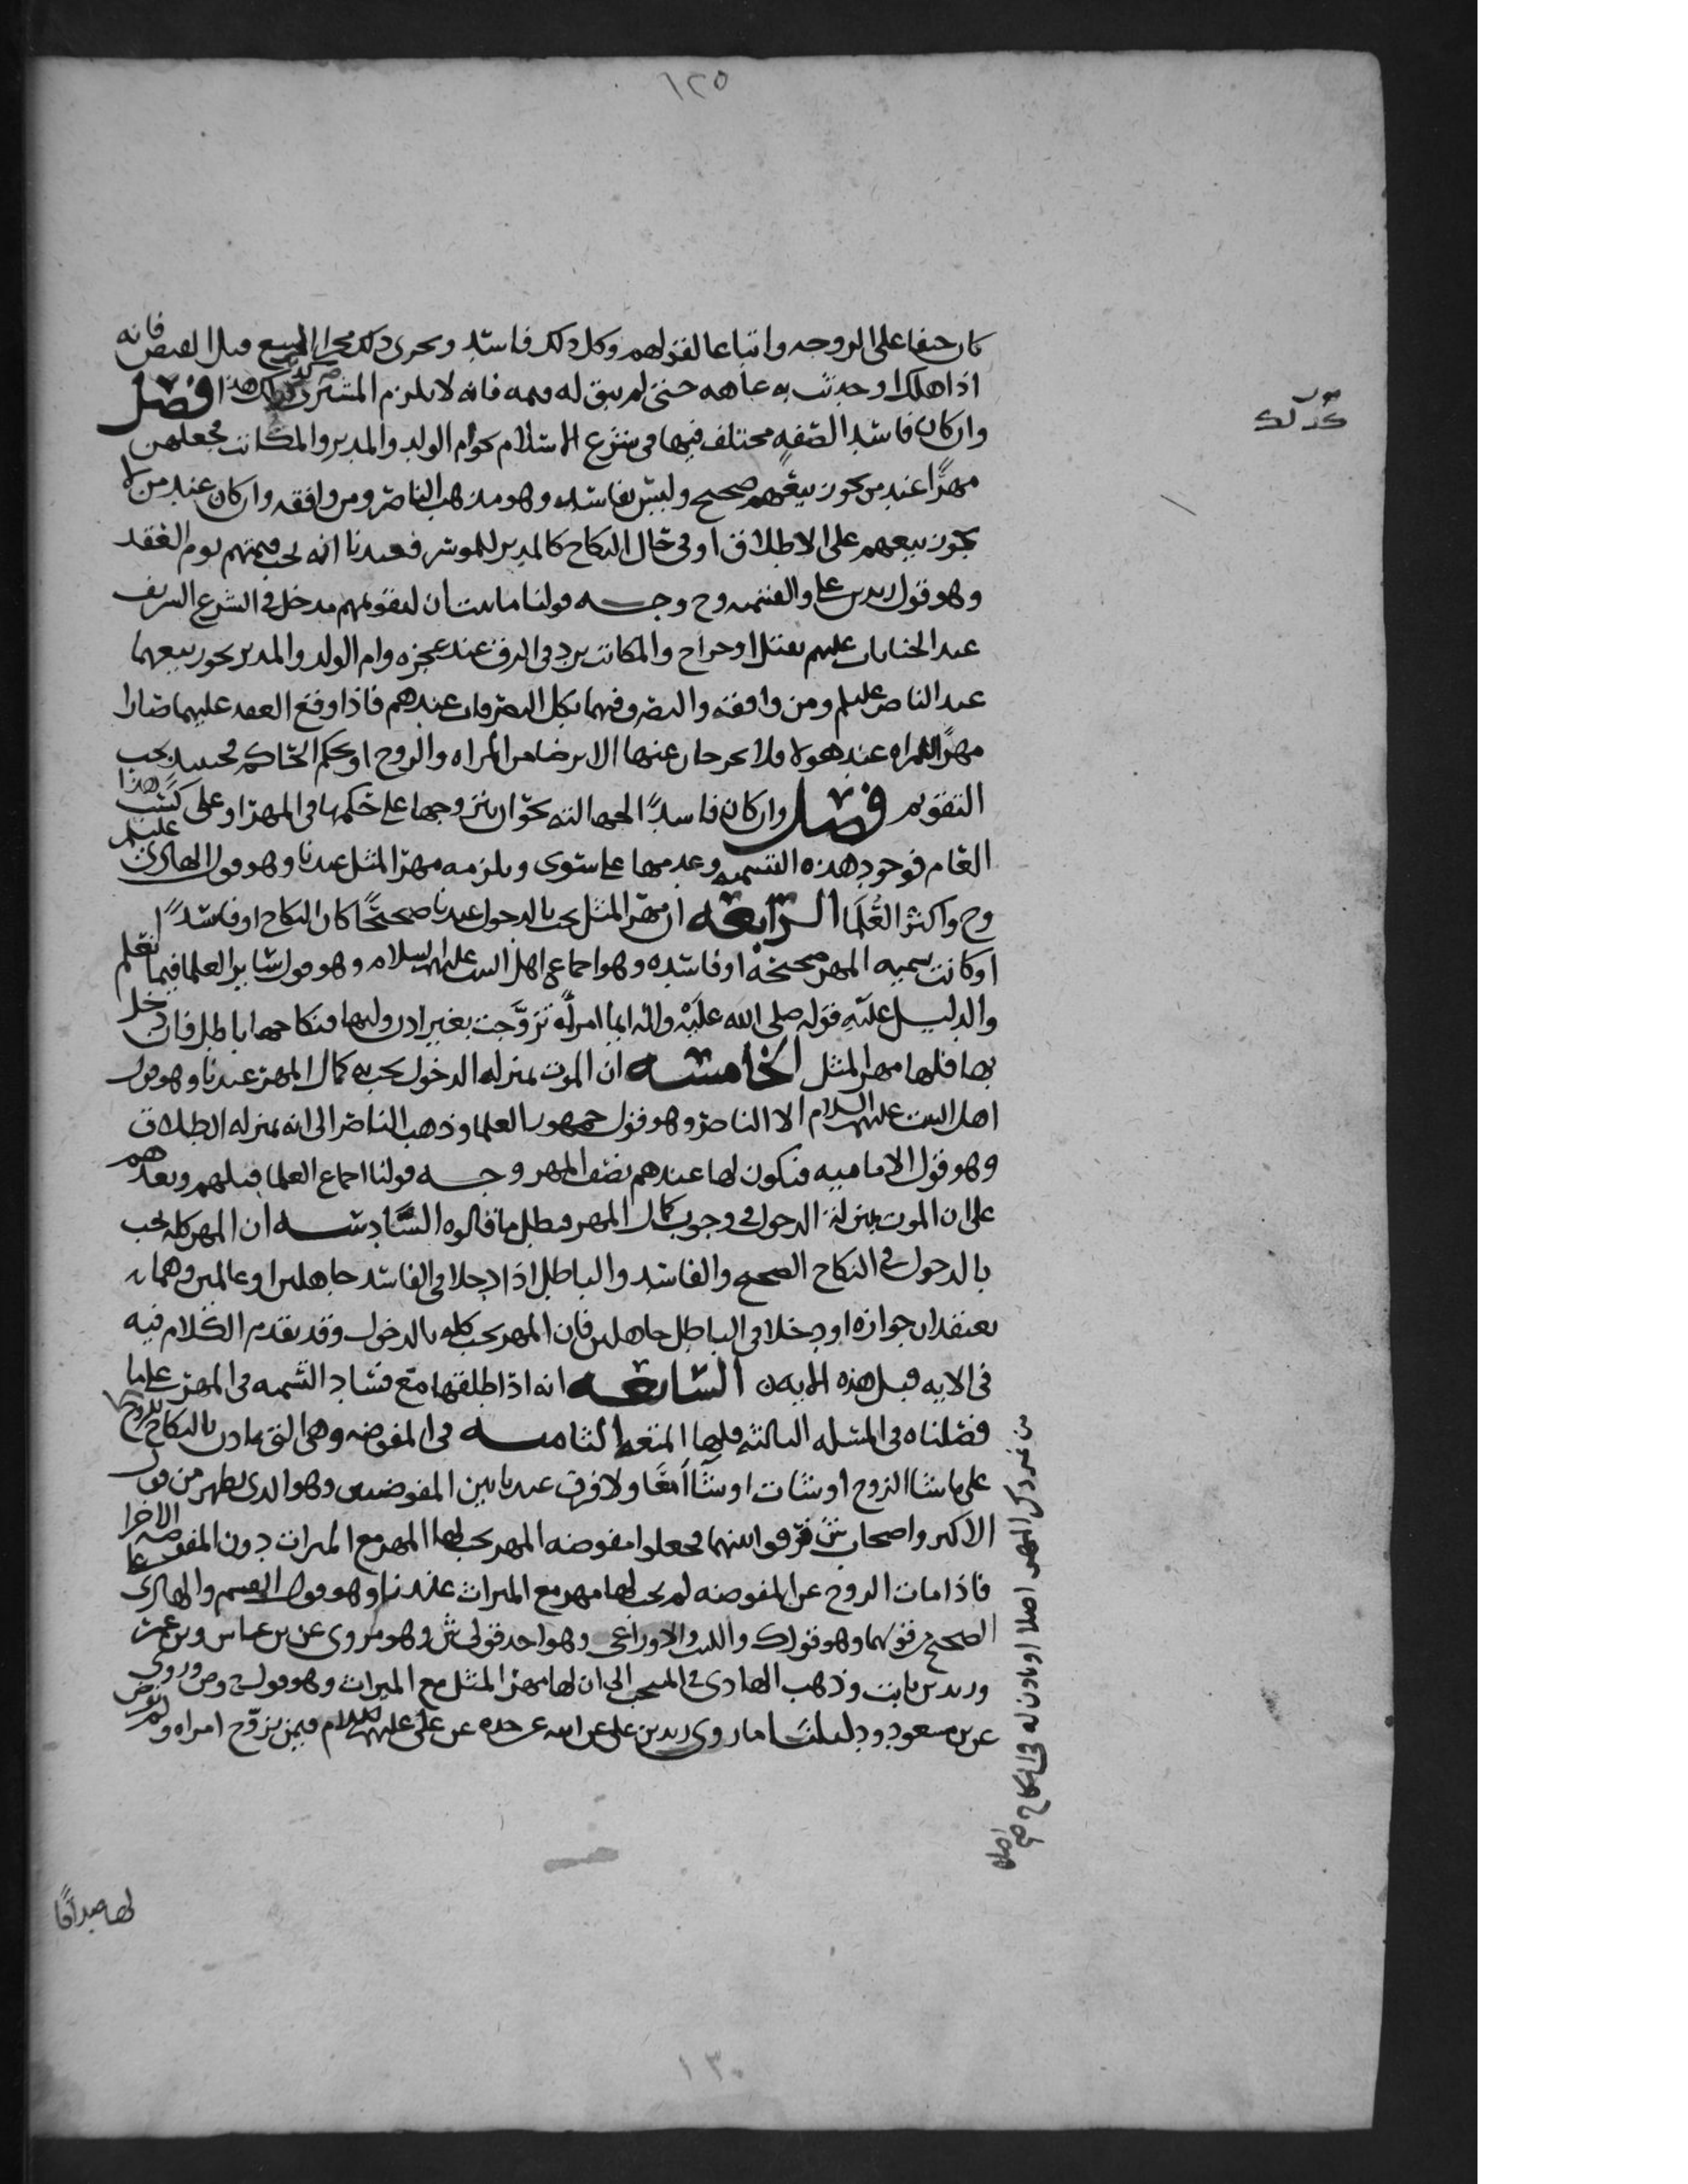 ١٢٥
كان حيفا على الزوجه واتباعا لقولهم وكل ذلك فاسد ويجرى ذلك مجرا المبيع قبل القبض فانه
اذا هلك او حدثت به عاهه حتى لم يبق له قيمه فانه لا يلزم المشترى هذا فصل
وان كان فاسد الصفه مختلف فيها فى شرع الاسلام كوام الولد والمدبر والمكاتب فجعلهن
مهرًا عند من يجوز بيعهم صحيح وليس بفاسد وهو مذهب الناصر ومن وافقه وان كان عند من لا
يجوز بيعهم على الاطلاق او فى حال النكاح كالمدبر للموسر فعندنا انه يجب قيمتهم يوم العقد
وهو قول زيد بن على والقسميه وح وجه قولنا ما بينا ان لتقويمهم مدخل فى الشرع الشريف
عند الجنايات عليهم بقتل او جراح والمكاتب يرد فى الرق عند عجزه وام الولد والمدبر يجوز بيعهما
عند الناصر عليلم ومن وافقه والتصرف فيهما بكل التصرفات عندهم فاذا وقع العقد عليهما صارا
مهرًا للمراه عند هولا فلا يخرجان عنها الا برضا من المراه والزوج او بحكم الحاكم فحينئذ يجب
التقويم فصل وان كان فاسدًا لجهالته نحو ان يتزوجها على حكمها فى المهر او على كسب هذا
العام فوجود هذه التسميه وعدمها على سوى ويلزمه مهر المثل عندنا وهو قول الهادى عليلم
وح واكثر العُلمَا الرابعه ان مهر المثل يجب بالدخول عندنا صحيحًا كان النكاح او فاسدًا
او كانت تسميه المهر صحيحه او فاسده وهو اجماع اهل البيت عليهم السلام وهو قول ساير العلما فيما نعلم
والدليل عليه قوله صلى الله عليْه واله ايما امراه تزوَّجت بغير اذن وليها فنكاحها باطل فان دخل
بها فلها مهر المثل الخامسه ان الموت بمنزله الدخول يجب به كمال المهر عندنا وهو قول
اهل البيت عليهم السلام الا الناصر وهو قول جمهور العلما وذهب الناصر الى انه بمنزله الطلاق
وهو قول الاماميه فيكون لها عندهم نصف المهر وجه قولنا اجماع العلما قبلهم وبعدهم
على ان الموت بمنزلة الدخول فى وجوب كمال المهر فبطل ما قالوه السَّادسه ان المهر كله يجب
بالدخول فى النكاح الصحيح والفاسد والباطل اذا دخلا فى الفاسد جاهلين او عالمين وهما
يعتقدان جوازه او دخلا فى الباطل جاهلين فان المهر يجب كله بالدخول وقد تقدم الكلام فيه
فى الايه قبل هذه الايه السابعه انه اذا طلقها مع فساد التسميه فى المهر على ما
فصلناه فى المسله الثالثه فلها المتعه الثامنه فى المفوضه وهى التى تاذن بالنكاح للزوج
على ما شا الزوج او شات او شاآ معًا ولا فرق عندنا بين المفوضتين وهو الذى يظهر من قول
الاكثر واصحاب ش فرقوا بينهما فجعلوا مفوضه المهر يجب لها المهر مع الميراث دون المفوضه الاخرا
فاذا مات الزوج عن المفوضه لم يجب لها مهر مع الميراث عندنا وهو قول القسم والهادى على
الصحيح من قولهما وهو قول ك والليث والاوزاعى وهو احد قولى ش وهو مروى عن بن عباس وبن عمر
وزيد بن ثابت وذهب الهادى فى المنتخب الى ان لها مهر المثل مع الميراث وهو قول ح وص وروى
عن بن مسعود ودليلنا ما روى زيد بن على عن ابيه عن جده عن على عليهم السلام فيمن تزوّج امراه ولم يفرض
لها صداقًا
من غير ذكر المهر اصلا او تاذن له فى النكاح صح
اصل
١٣٠